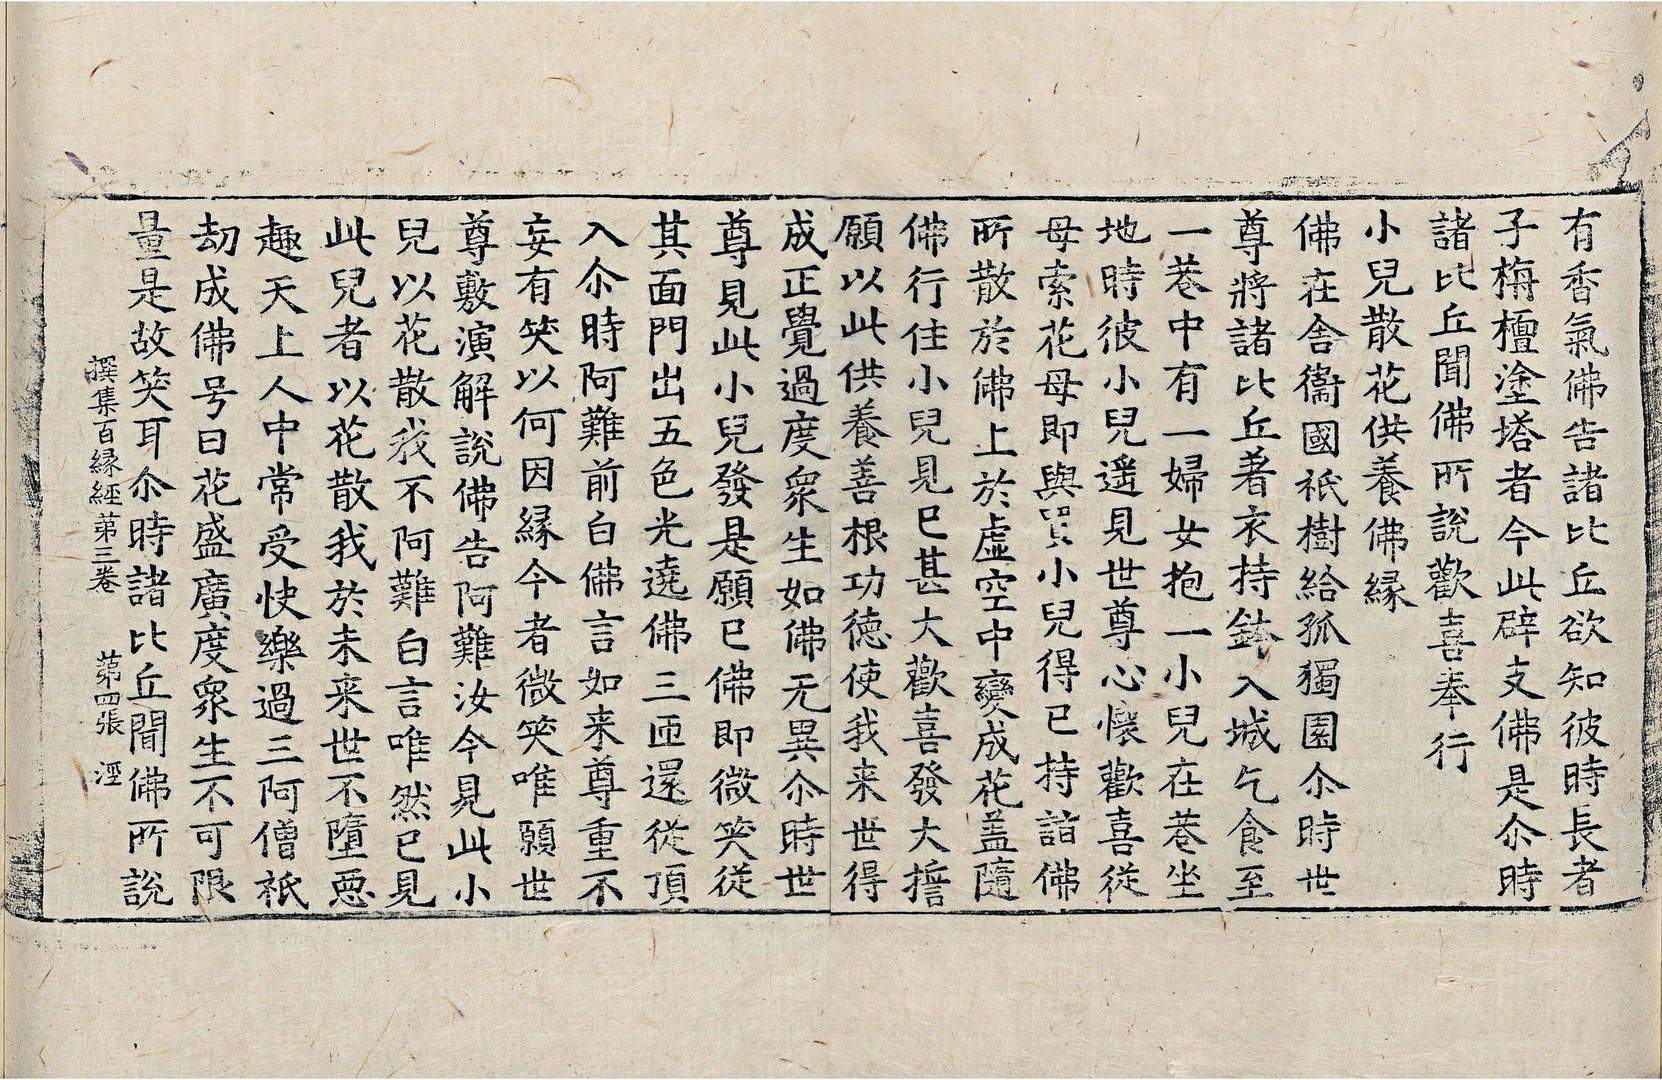 有香氣佛告諸比丘欲知彼時長者
子栴檀塗塔者今此辟支佛是尒時
諸比丘聞佛所說歡喜奉行
小兒散花供養佛縁
佛在舍衞國祇樹給孤獨園尒時世
尊將諸比丘著衣持鉢入城乞食至
一巷中有一婦女抱一小兒在巷坐
地時彼小兒遥見世尊心懷歡喜從
母索花母即與買小兒得已持詣佛
所散於佛上於虛空中變成花蓋隨
佛行住小兒見已甚大歡喜發大誓
願以此供養善根功德使我来世得
成正覺過度衆生如佛无異尒時世
尊見此小兒發是願已佛即微笑從
其面門出五色光遶佛三匝還從頂
入尒時阿難前白佛言如来尊重不
妄有笑以何因縁今者微笑唯願世
尊敷演解說佛告阿難汝今見此小
兒以花散我不阿難白言唯然已見
此兒者以花散我於未来世不墮惡
趣天上人中常受快樂過三阿僧祇
劫成佛号曰花盛廣度衆生不可限
量是故笑耳尒時諸比丘聞佛所說
撰集百縁經第三卷　第四張　涇